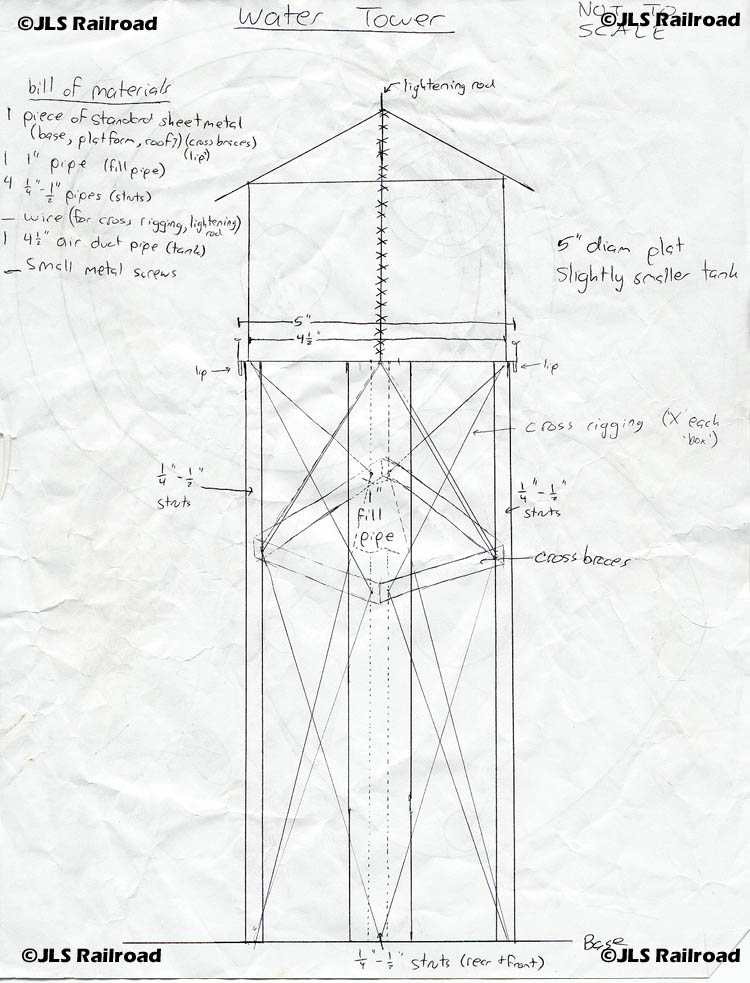 ©JLS Railroad
Water Tower
NOT TO
SCALE
©JLS Railroad
lightening rod
bill of materials
1 piece of standard sheetmetal
(base, platform, roof?) (cross braces)
(lip)
1 1" pipe (fill pipe)
4 1/4"-1/2" pipes (struts)
– wire (for cross rigging, lightening
rod)
1 4 1/2" air duct pipe (tank)
– Small metal screws
5" diam plat
Slightly smaller tank
5"
4 1/2"
lip
lip
cross rigging (X each
'box')
1/4"-1/2"
struts
1"
fill
pipe
1/4"-1/2"
struts
crossbraces
Base
©JLS Railroad
1/4"-1/2" struts (rear + front)
©JLS Railroad